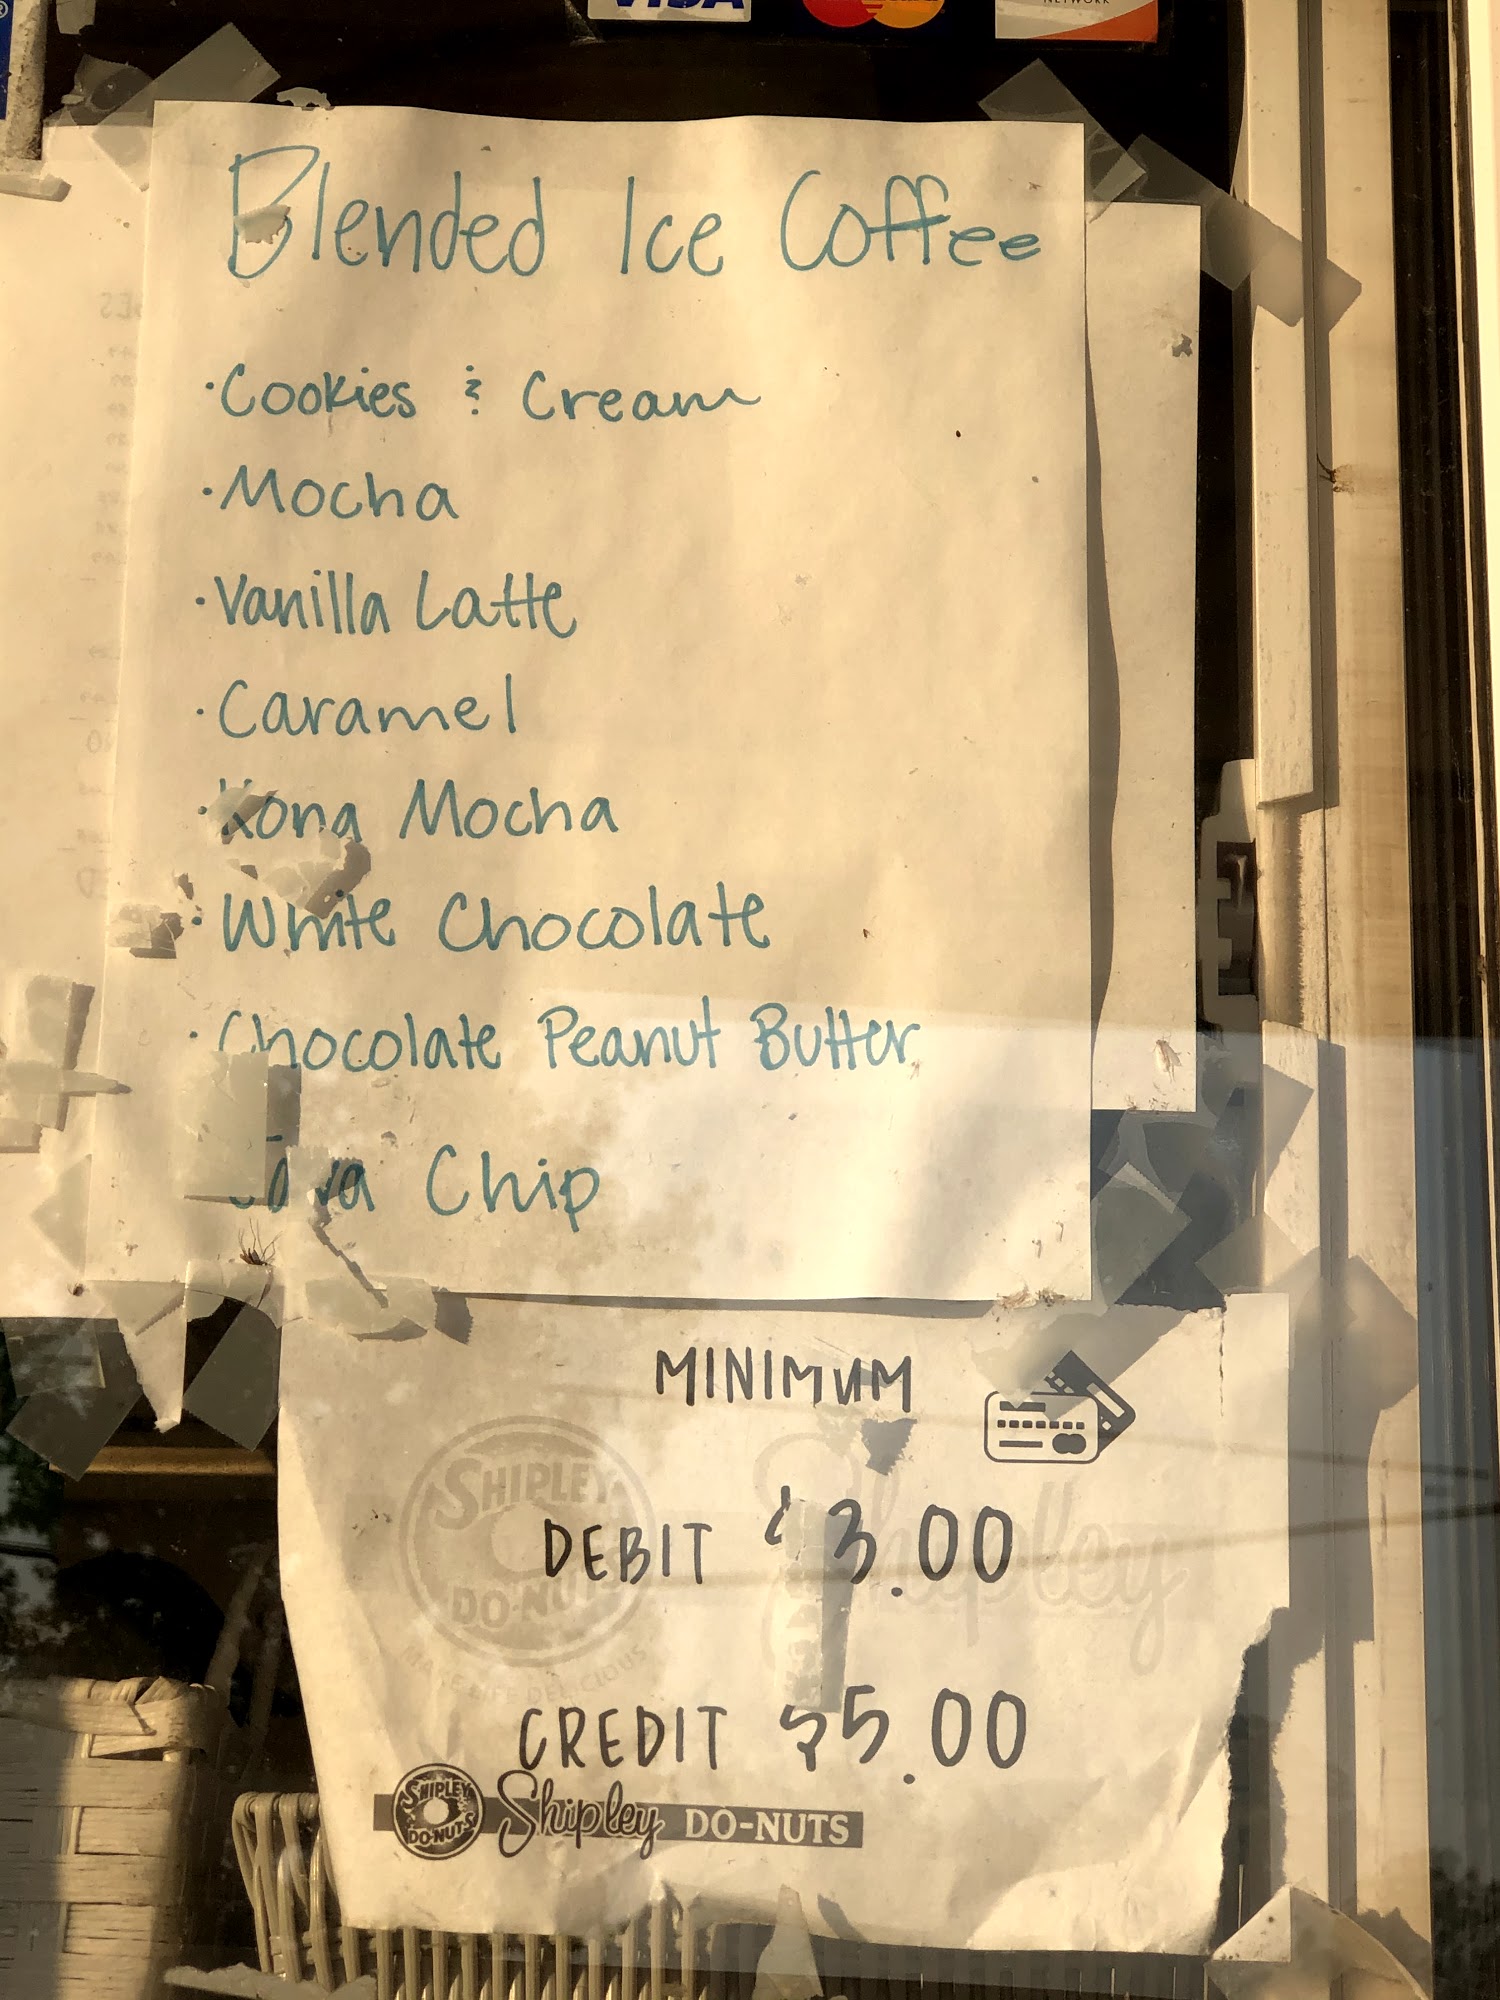 VISA
NETWORK
Blended Ice Coffee
·Cookies & Cream
·Mocha
·Vanilla Latte
·Caramel
·Kona Mocha
·White Chocolate
·Chocolate Peanut Butter
Java Chip
MINIMUM
SHIPLEY
DO-NUTS
Shipley
MAKE LIFE DELICIOUS
DEBIT $3.00
CREDIT $5.00
SHIPLEY
DO-NUTS
Shipley DO-NUTS